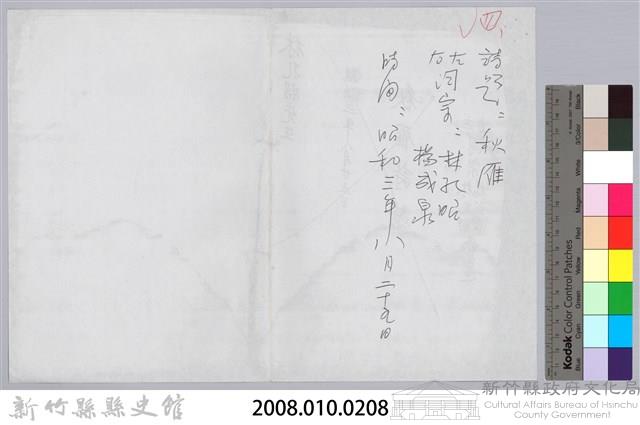 四、
詩題:秋雁
左右詞宗:林孔昭
楊成泉
時間:昭和三年八月二十九日
Black
3/Color
White
Magenta
Red
Yellow
Green
Cyan
Blue
Kodak Color Control Patches
新竹縣縣史館
2008.010.0208
新竹縣政府文化局
Cultural Affairs Bureau of Hsinchu
County Government